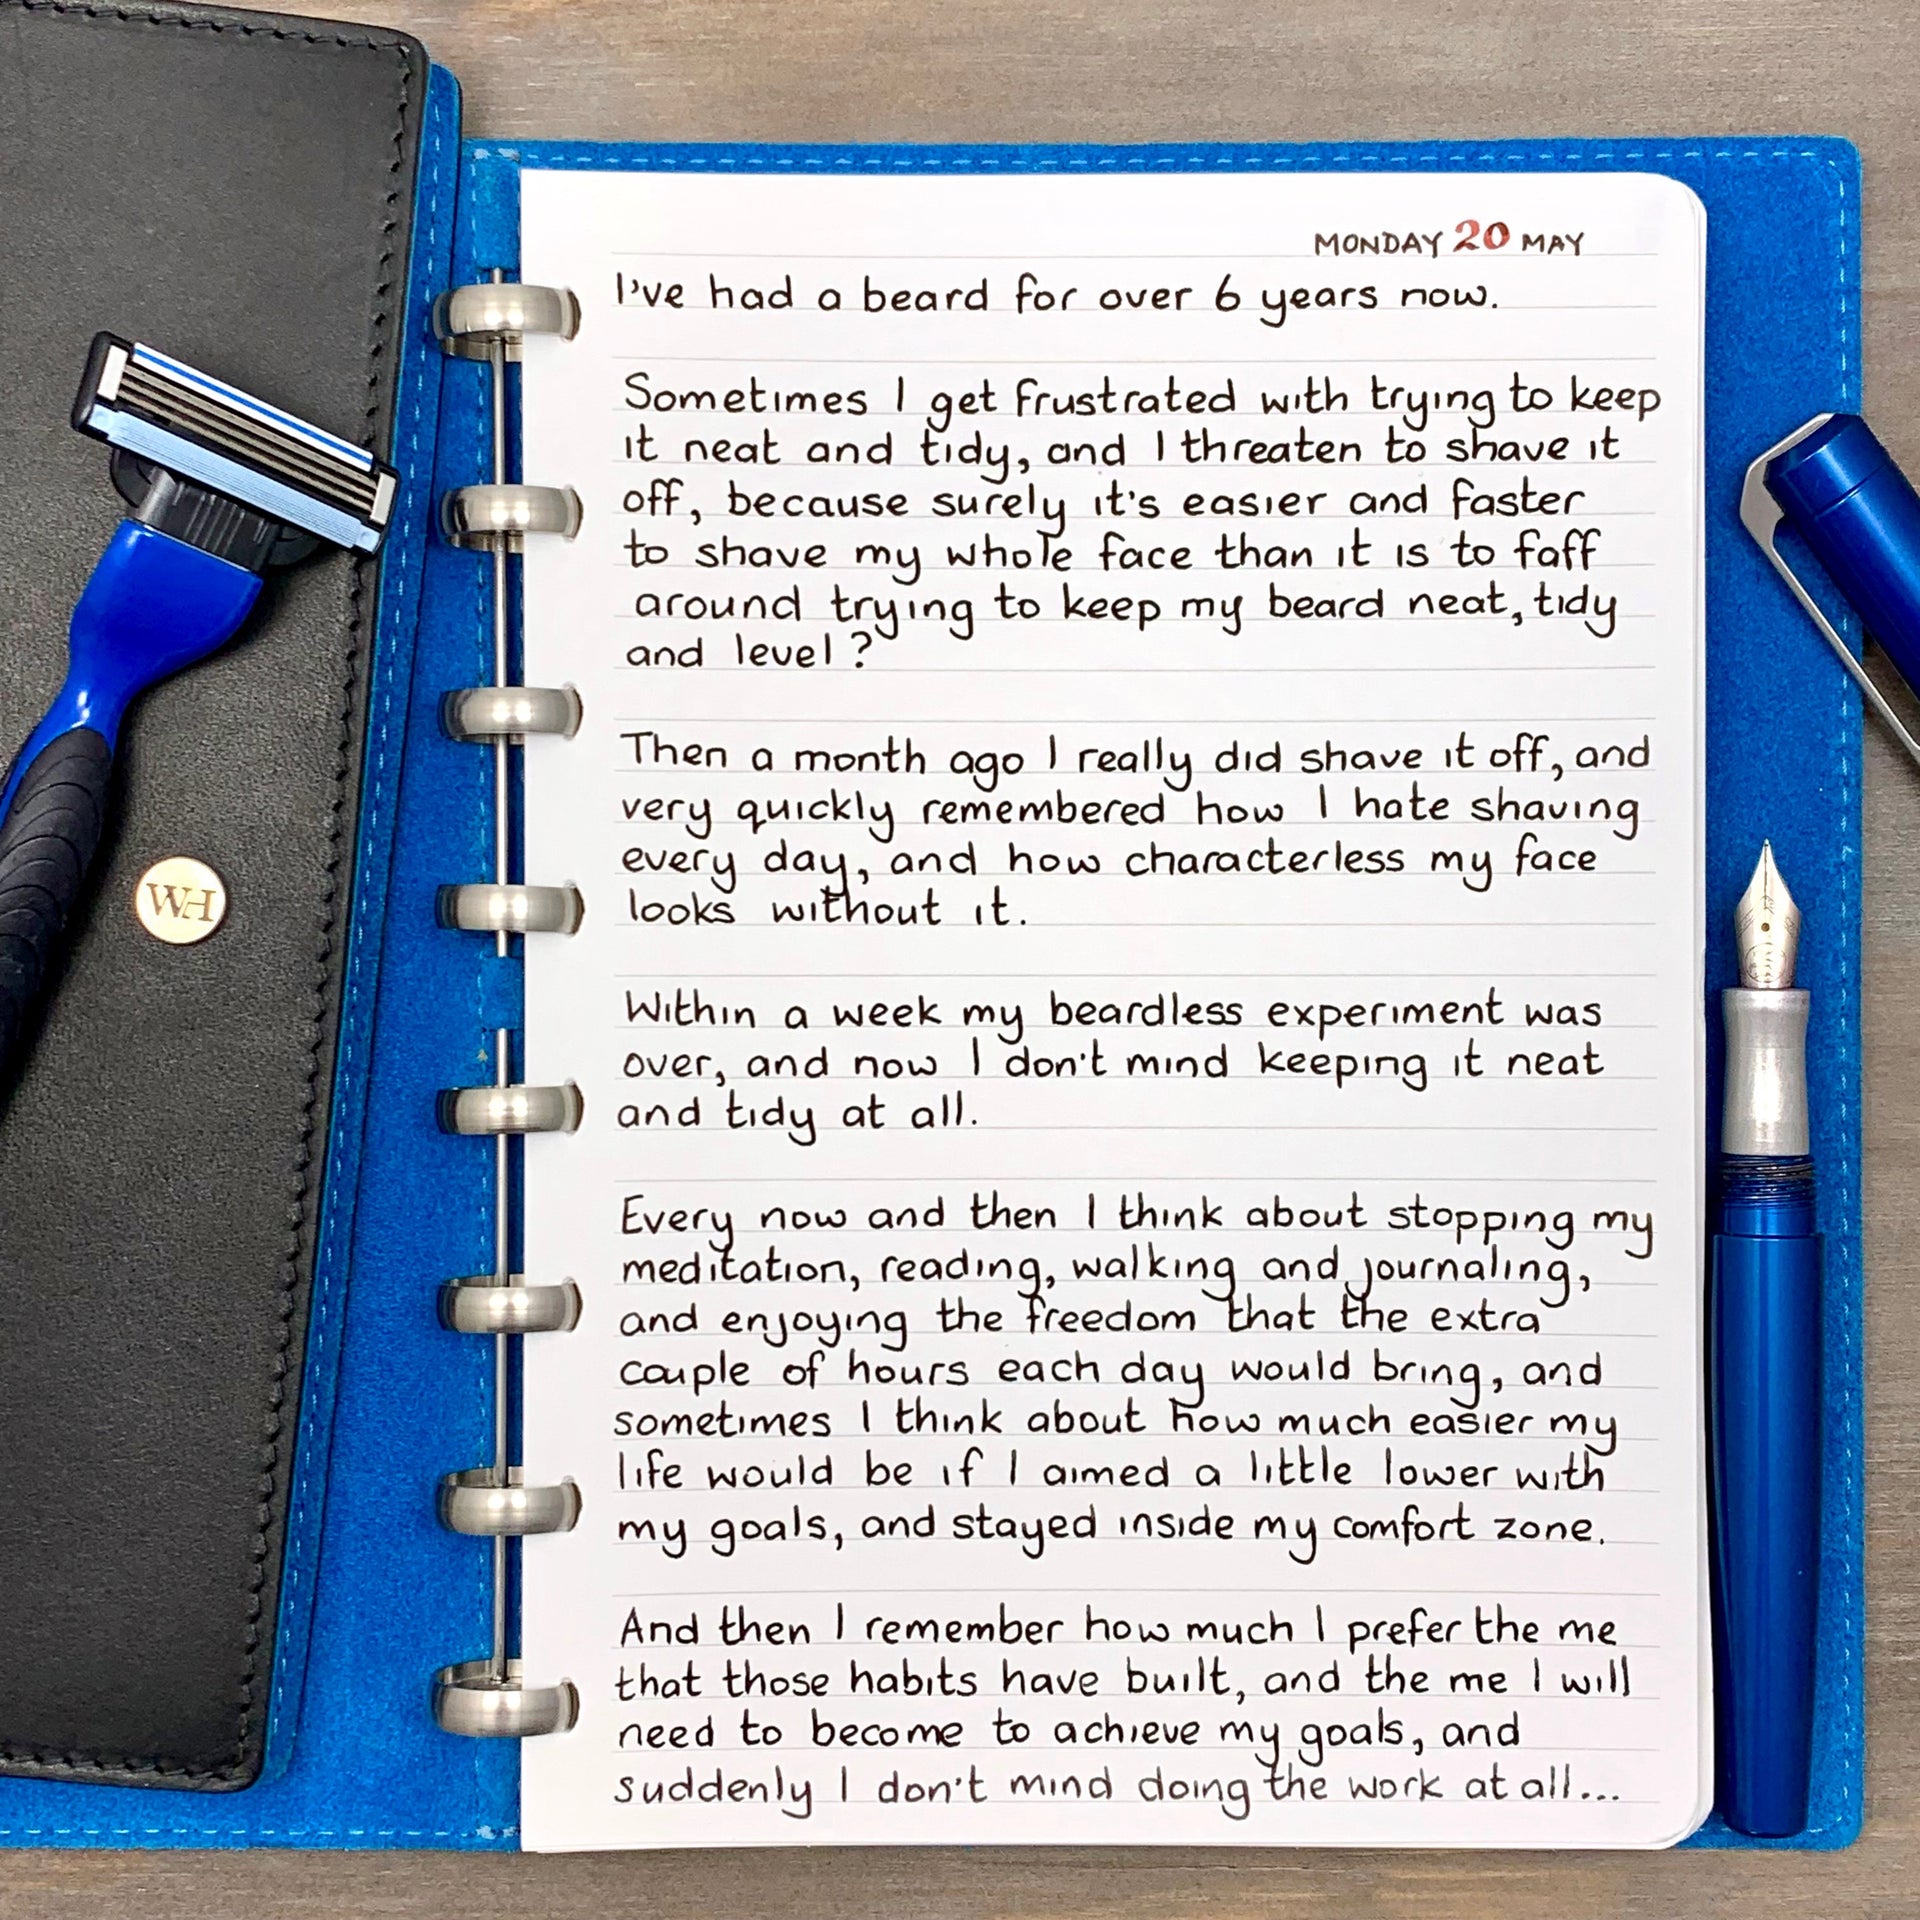 MONDAY 20 MAY
I've had a beard for over 6 years now.
Sometimes I get frustrated with trying to keep
it neat and tidy, and I threaten to shave it
off, because surely it's easier and faster
to shave my whole face than it is to faff
around trying to keep my beard neat, tidy
and level?
Then a month ago I really did shave it off, and
very quickly remembered how I hate shaving
every day, and how characterless my face
looks without it.
Within a week my beardless experiment was
over, and now I don't mind keeping it neat
and tidy at all.
Every now and then I think about stopping my
meditation, reading, walking and journaling,
and enjoying the freedom that the extra
couple of hours each day would bring, and
sometimes I think about how much easier my
life would be if I aimed a little lower with
my goals, and stayed inside my comfort zone.
And then I remember how much I prefer the me
that those habits have built, and the me I will
need to become to achieve my goals, and
suddenly I don't mind doing the work at all...
WH